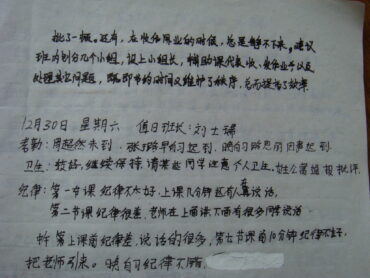 批了一顿。还有，在收作业的时候，总是静不下来。建议
班内划分几个小组，设上小组长，辅助课代表收、发作业以及
处理其它问题，既节约时间又维护了秩序，总而提高了效率
12月30日 星期六 值日班长：刘士瑞
考勤：周超然未到，张 早自习迟到，晚自习 迟到
卫生：较好，继续保持，请某些同学注意个人卫生，姓 批评
纪律：第一节课纪律不太好，上课几分钟还有人说话
第二节课纪律很差，老师在上面讲下面有很多同学说话
第 上课前纪律差，说话的很多，第七节课前10分钟纪律不好，
把老师引来。晚自习纪律不错